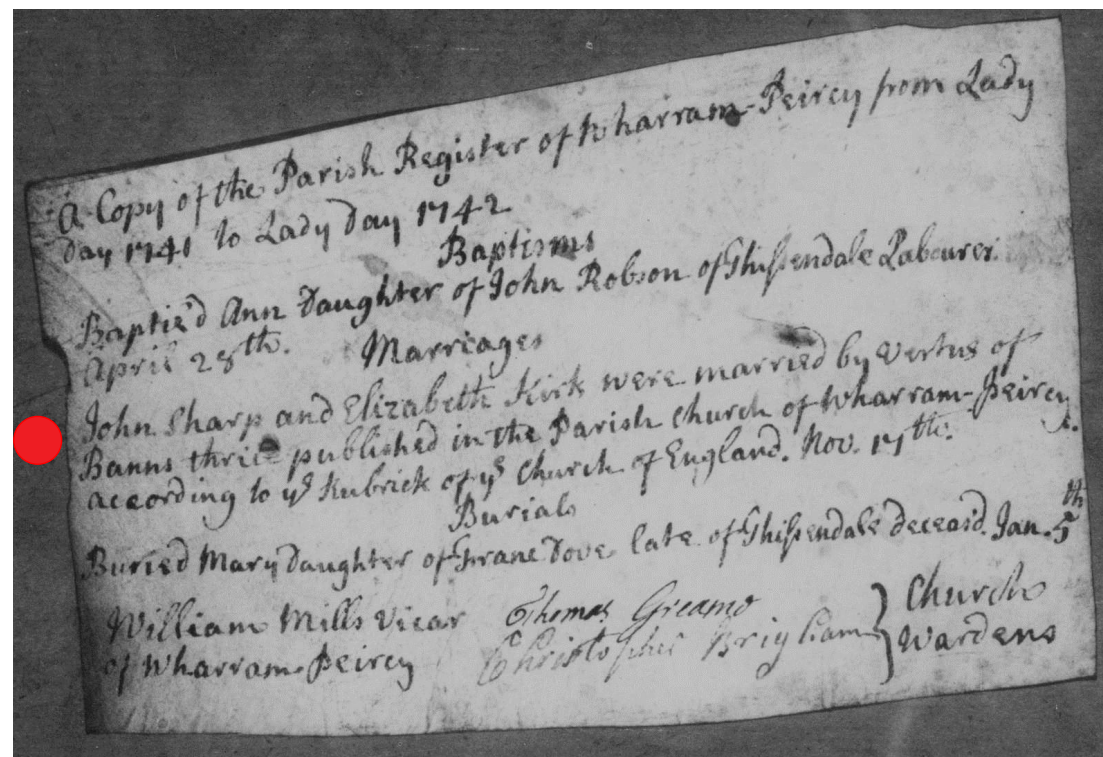 A Copy of the Parish Register of Wharram-Peircy from Lady
Day 1741 to Lady Day 1742
Baptisms
Baptiz'd Ann Daughter of John Robson of Thissendale Labourer.
April 28th.
Marriages
John Sharp and Elizabeth Kirk were married by vertue of
Banns thrice published in the Parish Church of Wharram-Peircy
according to ye Rubrick of ye Church of England. Nov. 17th.
Burials
Buried Mary Daughter of Dove late of Thissendale deceas'd. Jan. 5th
William Mills Vicar Thomas Greamo Church
of Wharram-Peircy Christopher Brigham Wardens